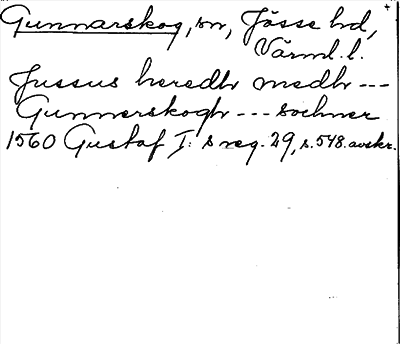 Gunnarskog, sn, Jösse hd,
Värml. l.
Jussus heredh medh ---
Gunnerskogh --- sochner
1560 Gustaf I:s reg. 29, s. 548. avskr.